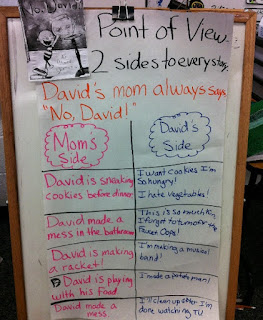 No, David!
Point of View
2 sides to every story
David's mom always says,
"No, David!"
Mom's
Side
David's
Side
David is sneaking
cookies before dinner.
I want cookies I'm
So hungry!
I hate vegetables!
David made a
mess in the bathroom
This is so much fun
I forgot to turn off the
Faucet Oops!
David is making
a racket!
I'm making a musical
band!
David is playing
with his Food
I made a potato man!
David made a
mess.
I'll clean up after I'm
done watching TV